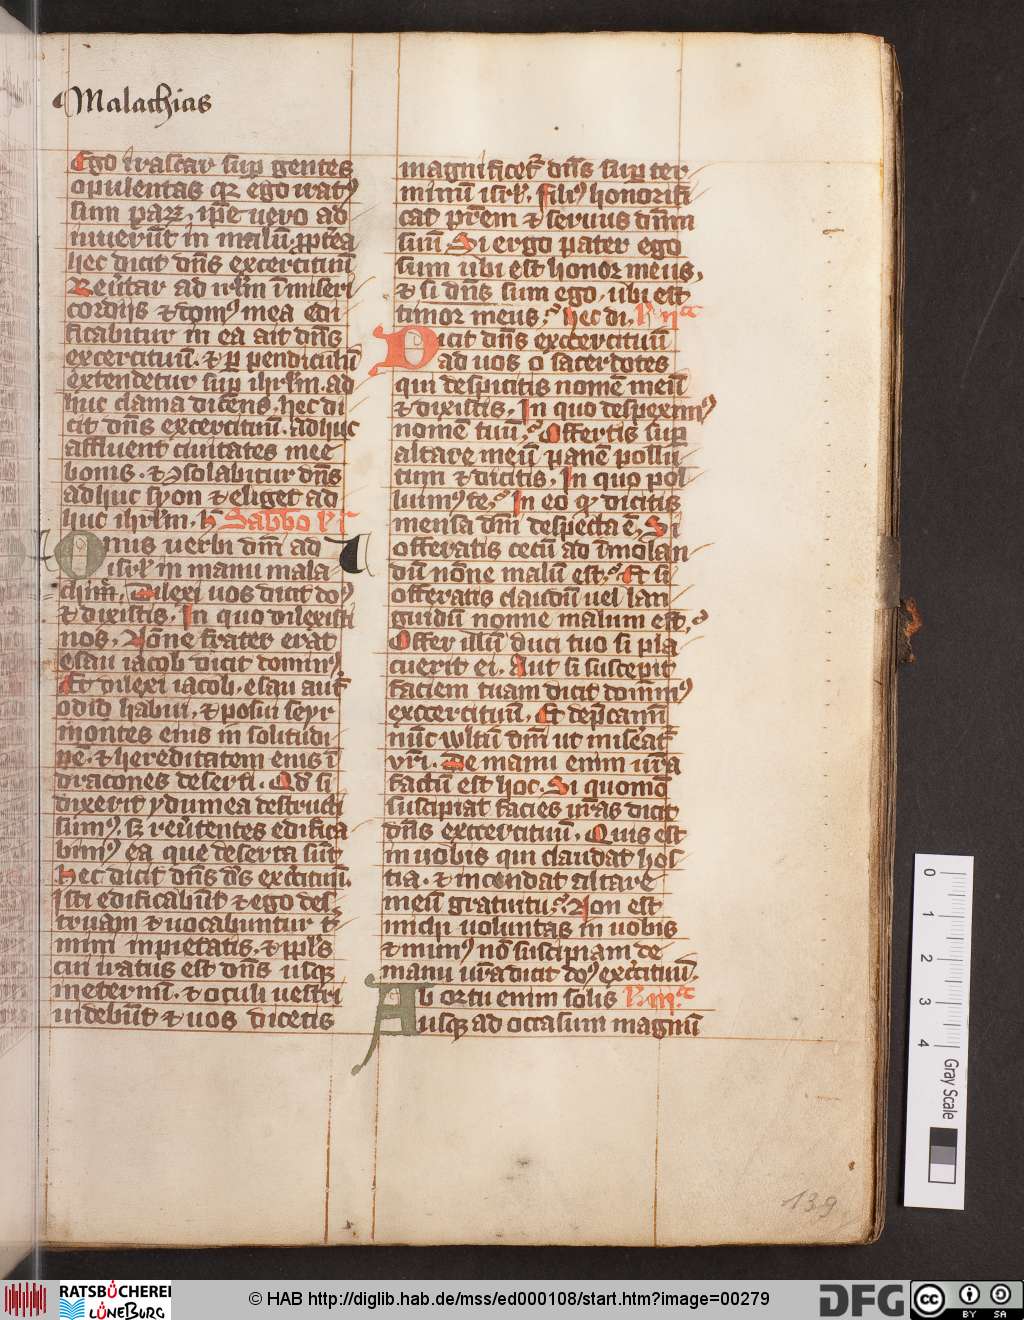 Malachias
Ego irascar sup̱ gentes
opulentas qꝛ ego iratꝰ
sum paꝝ, ip̄e uero ad
iuuerūt in malū. ꝓpt̄ea
hec dicit dn̄s excercituū
Reūtar ad irlm̄ ī miseri
cordijs ⁊ domꝰ mea edi
ficabitur in ea ait dn̄s
excercituū. ⁊ ꝑpendiculū
extendetur sup̱ ihrlm̄. ad
huc clama dicens. hec di
cit dn̄s excercituū. adhuc
affluent ciuitates mee
bonis. ⁊ ꝯsolabitur dn̄s
adhuc syon ⁊ eliget ad
huc ihrlm̄. h̄ Sabbo
Onus uerbi dn̄i ad
isrl̄ in manu mala
chi
Dilexi uos dicit doꝰ
⁊ dixistis. In quo dilexisti
nos. Nōne frater erat
esau iacob dicit dominꝰ
Et dilexi iacob. esau aut̄
odio habui. ⁊ posui seyr
montes eius in solitudi
nē. ⁊ hereditatem eius ī
dracones deserti. Qd̄ si
dixerit ydumea destructi
sumꝰ. sꝫ reūtentes edifica
bimꝰ ea que deserta sūt
Hec dicit dn̄s d̄s excituū.
Isti edificabūt ⁊ ego des
truam ⁊ uocabuntur t̄
mini inpietatis. ⁊ ppl̄s
cui iratus est dn̄s usqꝫ
in eternū. ⁊ oculi uestri
uidebūt ⁊ uos dicetis
magnificet̄ dn̄s sup̱ ter
minū isrl̄. Filiꝰ honorifi
cat pr̄em ⁊ seruus dn̄m
suū. Si ergo pater ego
sum ubi est honor meus.
⁊ si dn̄s sum ego. ubi est
timor meus? hec di. l̄ ijᵃ
Dicit dn̄s exccercituū
ad uos o sacerdotes
qui despicitis nomē meū
⁊ dixistis. In quo despeximꝰ
nomē tuū? Offertis sup̱
altare meū panē pollu
tum ⁊ dicitis. In quo pol
luimꝰ te? In eo qꝫ dicitis
mensa dn̄i despecta ē. Si
offeratis cecū ad īmolan
dū nōne malū est? Et si
offeratis claudū uel lan
guidū nonne malum est?
Offer illū duci tuo si pla
cuerit ei. Aut si susceperit
faciem tuam dicit domīnꝰ
exccercituū. Et dep̄camī
nūc wltū dn̄i ut miseat̄
vr̄i. De manu enim ur̄a
factū est hoc. Si quomō
suscipiat facies ur̄as dicit
dn̄s exccercituū. Quis est
in uobis qui claudat hos
tia. ⁊ incendat altare
meū gratuitu? Non est
michi uoluntas in uobis
⁊ munꝰ nō suscipiam de
manu ur̄a dicit doꝰ excituū.
Ab ortu enim solis l̄. iijᵃ
usqꝫ ad occasum magnū
139
0
1
2
3
4
Gray Scale
RATSBÜCHEREI
LÜNEBURG
© HAB http://diglib.hab.de/mss/ed000108/start.htm?image=00279
DFG
cc
BY
SA